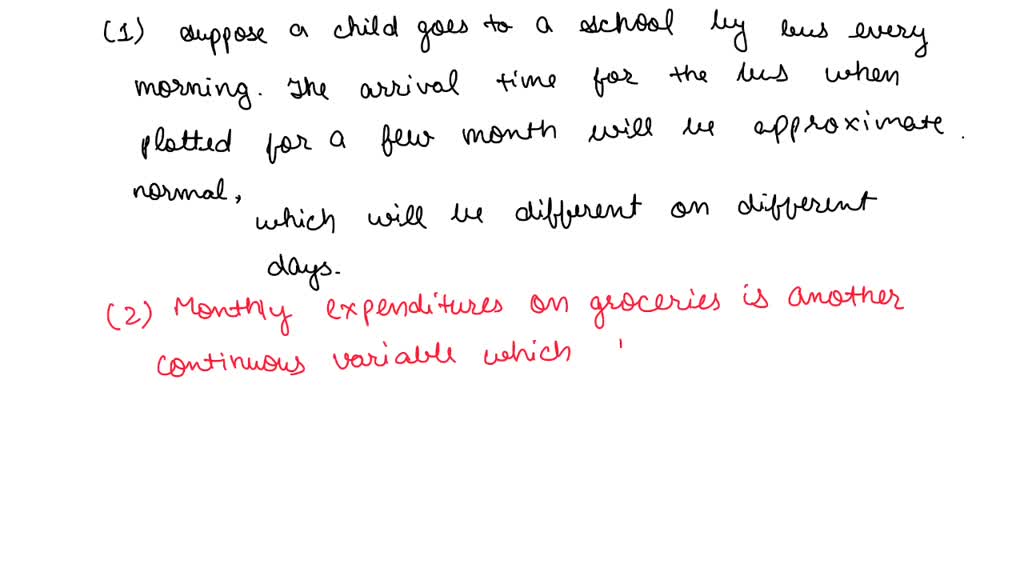 (1) suppose a child goes to a school by bus every
morning. The arrival time for the bus when
plotted for a few month will be approximate.
normal,
which will be different on different
days.
(2) Monthly expenditures on groceries is another
continuous variable which